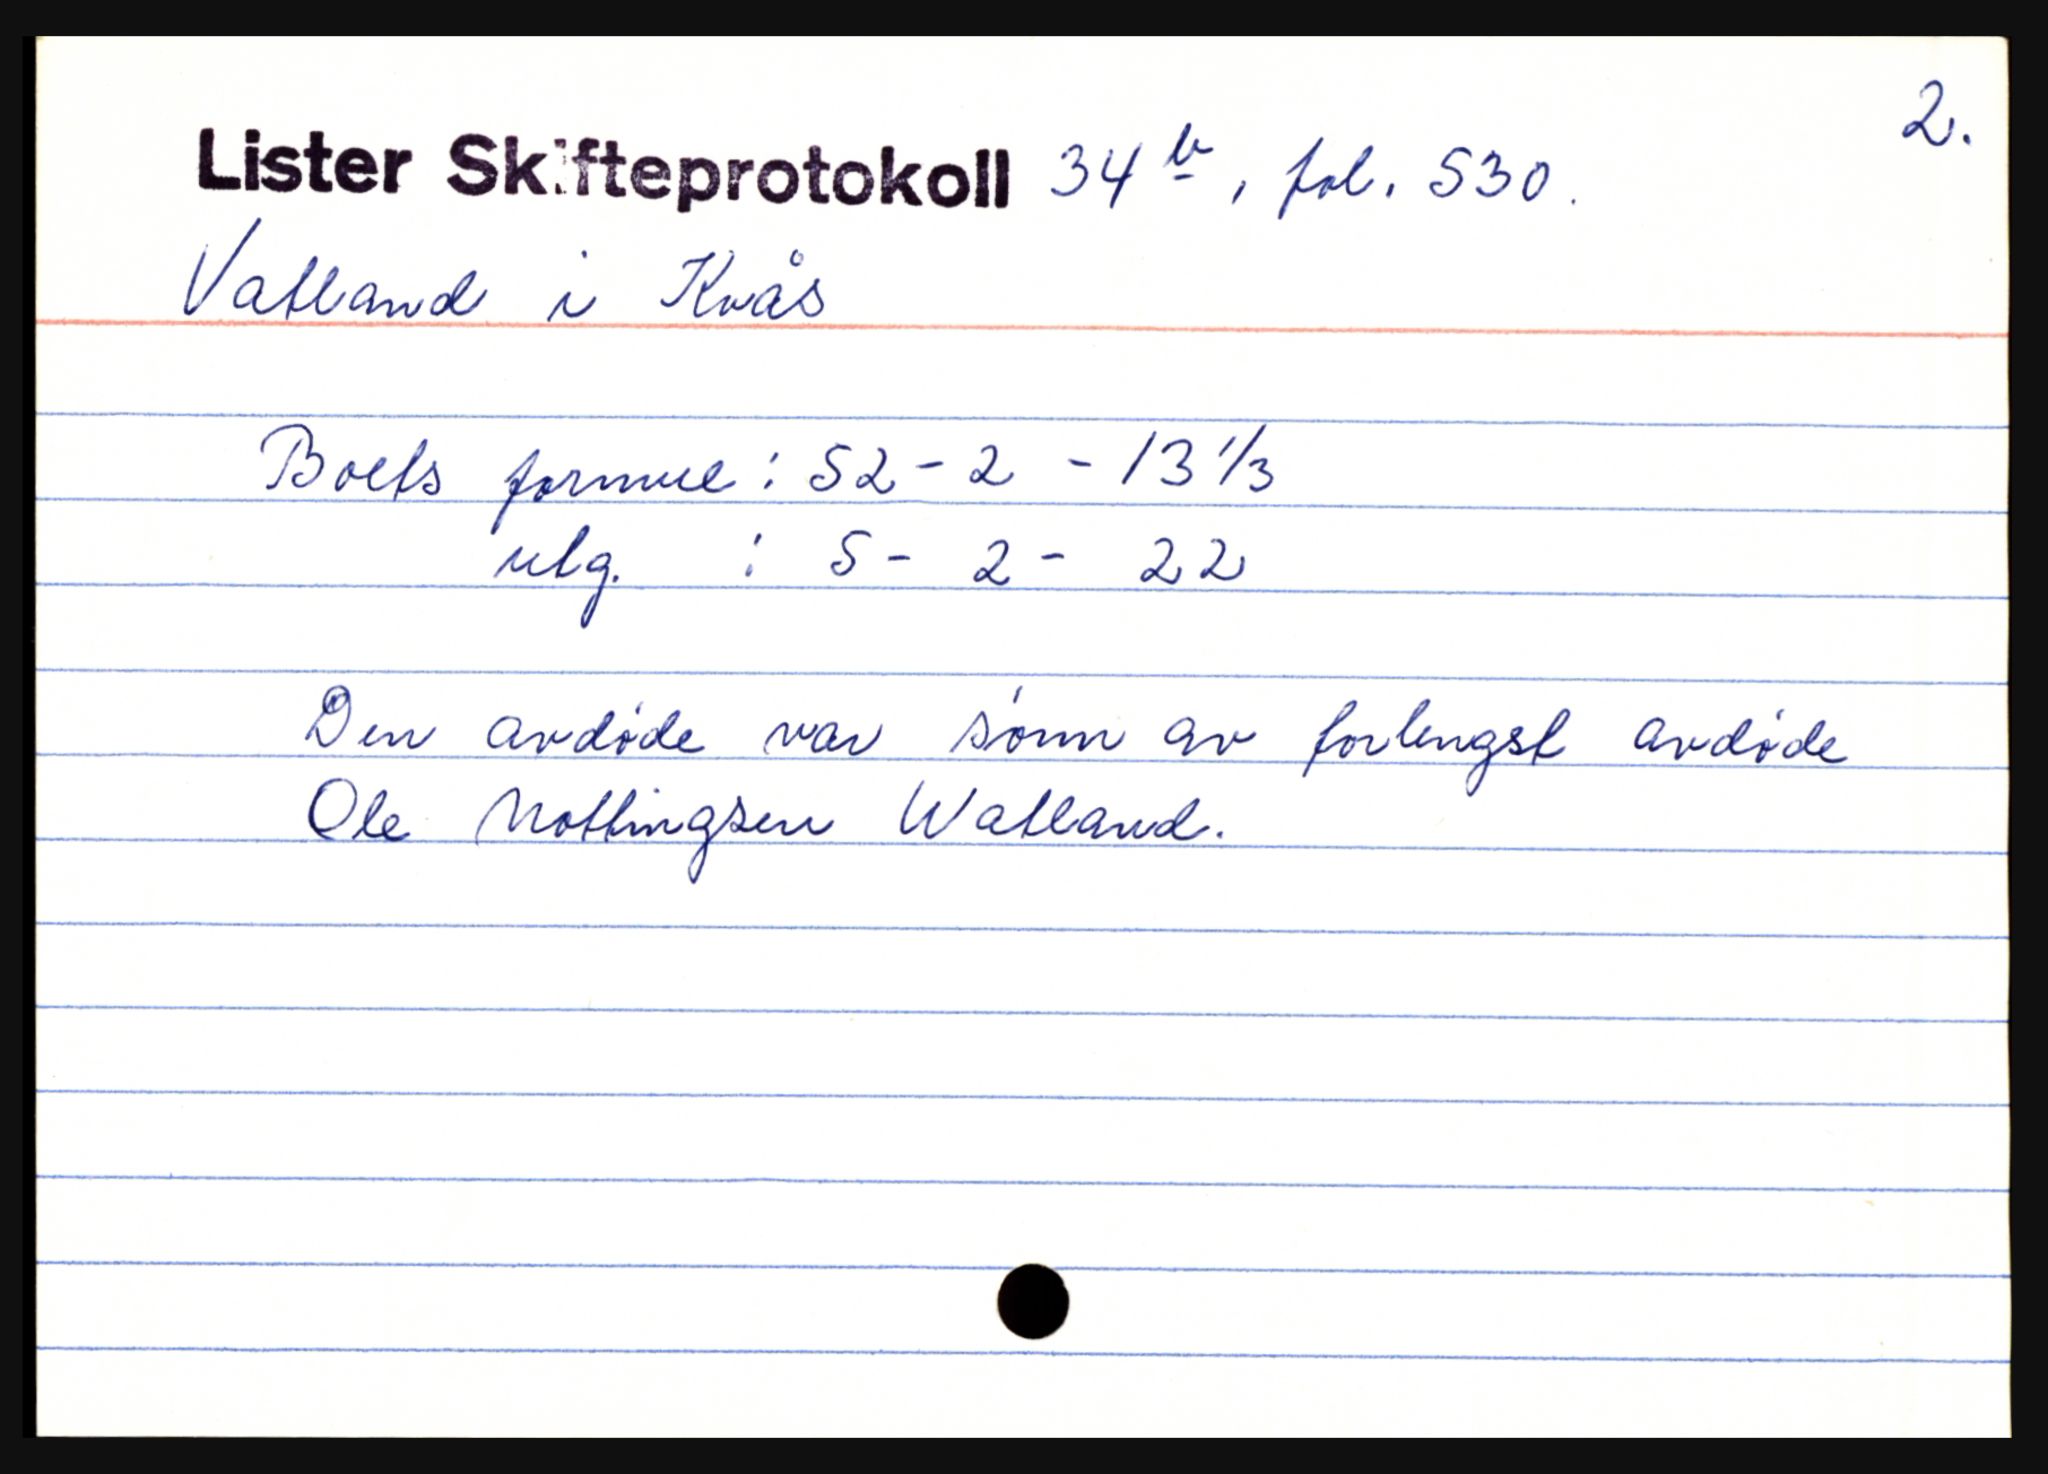 2.
Lister Skifteprotokoll 34b, fol. 530.
Vatland i Kvås
Boets formue : 52 - 2 - 13 1/3
utg. : 5 - 2 - 22
Den avdøde var sønn av forlengst avdøde
Ole Nottingsen Watland.